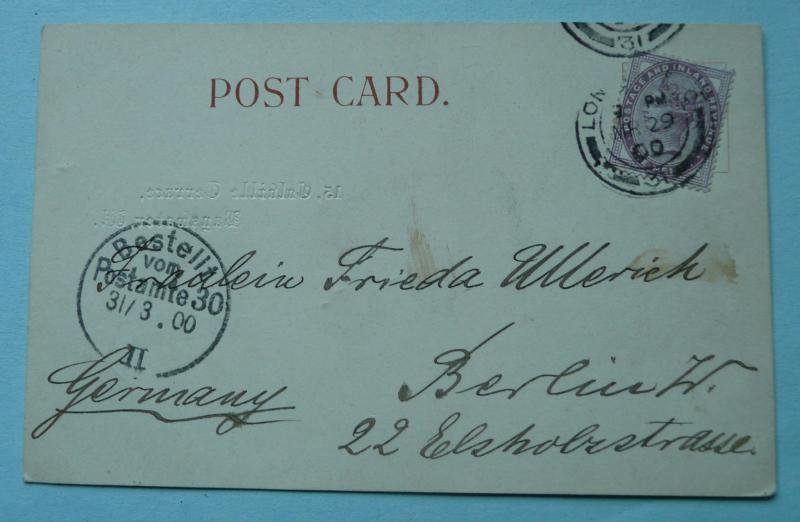 POST CARD.
31
LON
PM
29
00
31
POSTAGE AND INLAND REVENUE
Bestellt
vom
Postamte 30
31/3.00
II
Fräulein Frieda Ullerich
Berlin W.
Germany
22 Elsholzstrasse.